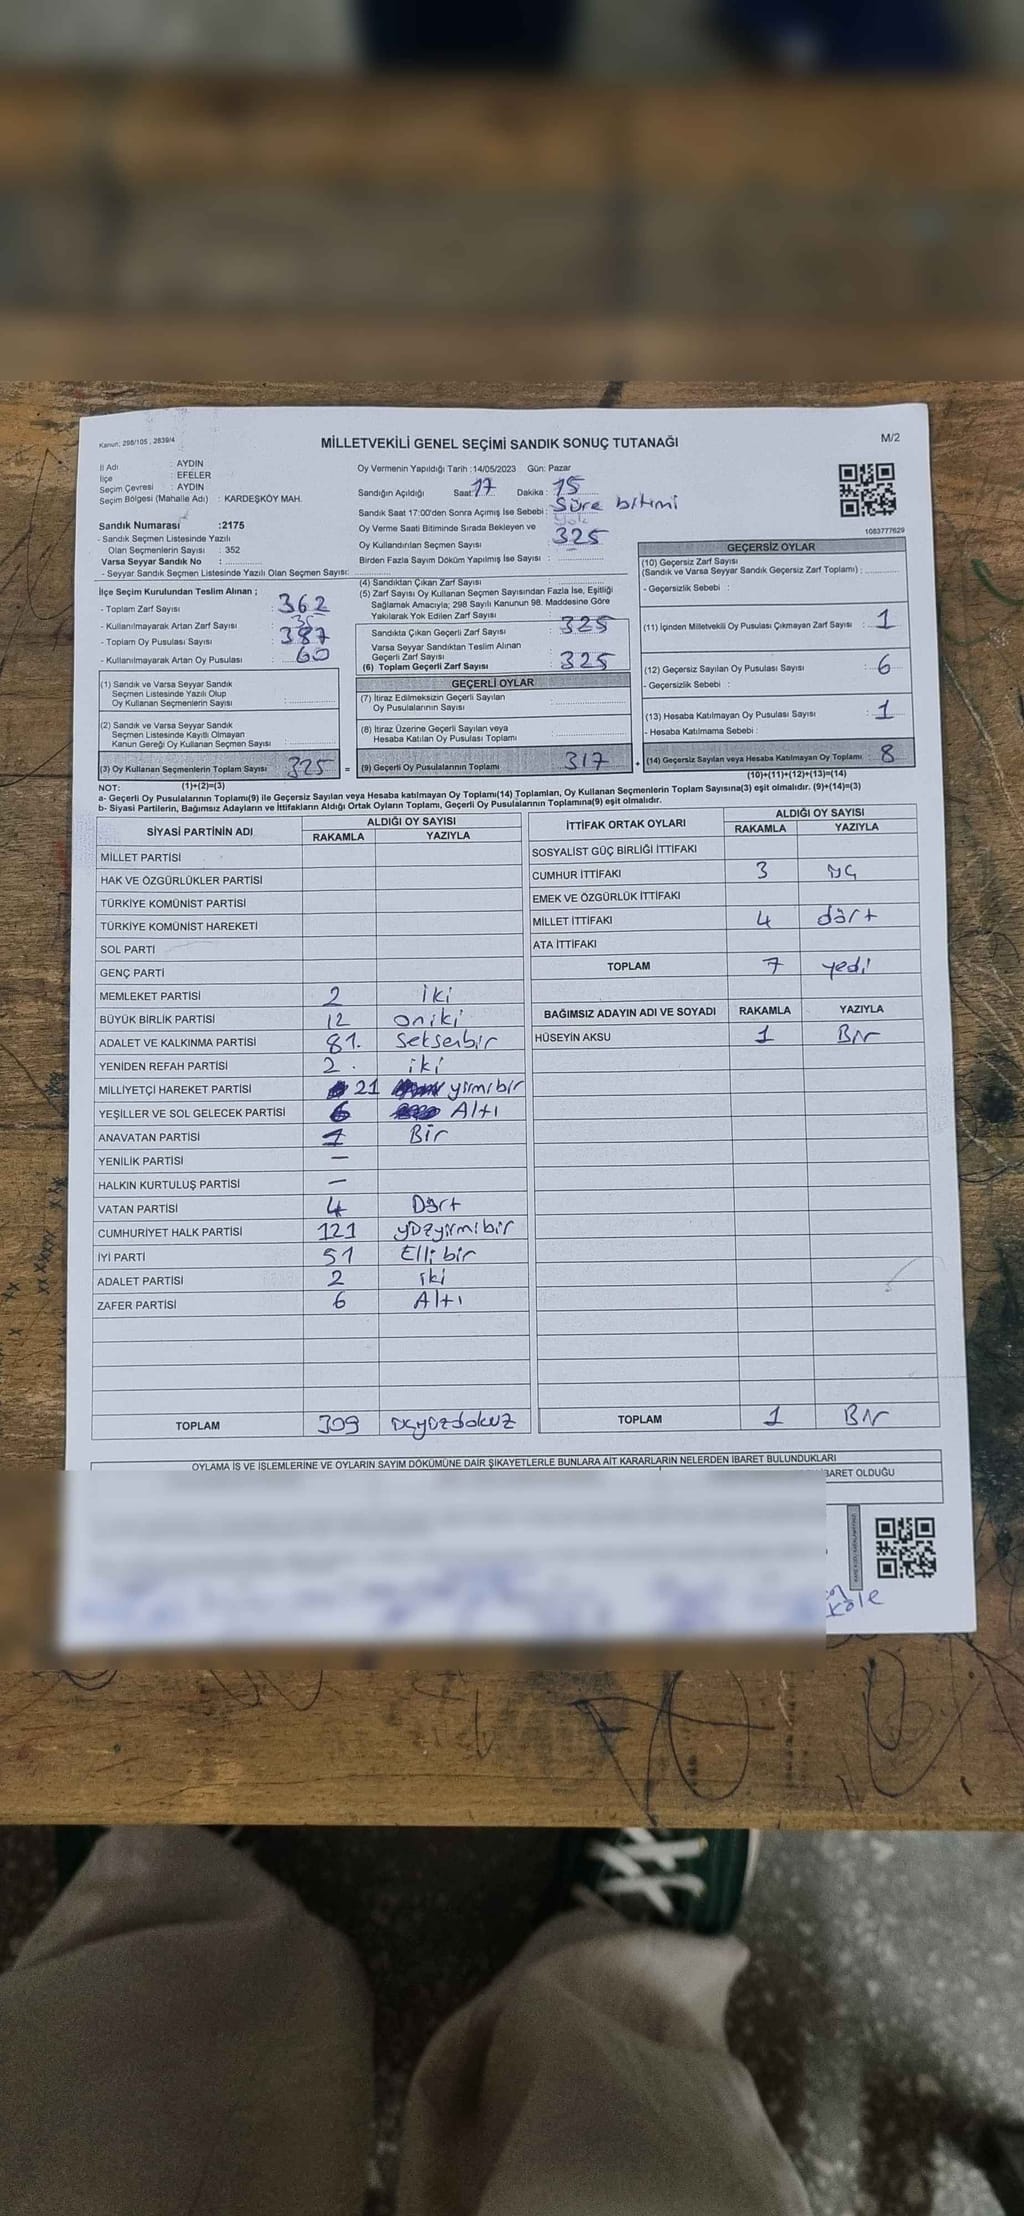 Kanun: 298/105 , 2839/4
MİLLETVEKİLİ GENEL SEÇİMİ SANDIK SONUÇ TUTANAĞI
M/2
İl Adı : AYDIN
İlçe : EFELER
Seçim Çevresi : AYDIN
Seçim Bölgesi (Mahalle Adı) : KARDEŞKÖY MAH.
Sandık Numarası :2175
- Sandık Seçmen Listesinde Yazılı
Olan Seçmenlerin Sayısı : 352
Varsa Seyyar Sandık No :
- Seyyar Sandık Seçmen Listesinde Yazılı Olan Seçmen Sayısı:
İlçe Seçim Kurulundan Teslim Alınan ;
- Toplam Zarf Sayısı : 362
- Kullanılmayarak Artan Zarf Sayısı :
- Toplam Oy Pusulası Sayısı : 387
- Kullanılmayarak Artan Oy Pusulası : 60
(1) Sandık ve Varsa Seyyar Sandık
Seçmen Listesinde Yazılı Olup
Oy Kullanan Seçmenlerin Sayısı :
(2) Sandık ve Varsa Seyyar Sandık
Seçmen Listesinde Kayıtlı Olmayan
Kanun Gereği Oy Kullanan Seçmen Sayısı :
(3) Oy Kullanan Seçmenlerin Toplam Sayısı 325 =
Oy Vermenin Yapıldığı Tarih :14/05/2023 Gün: Pazar
Sandığın Açıldığı Saat: 17 Dakika : 15
Sandık Saat 17:00'den Sonra Açımış İse Sebebi : Süre bitimi
Oy Verme Saati Bitiminde Sırada Bekleyen ve Yok
Oy Kullandırılan Seçmen Sayısı : 325
Birden Fazla Sayım Döküm Yapılmış İse Sayısı :
(4) Sandıktan Çıkan Zarf Sayısı :
(5) Zarf Sayısı Oy Kullanan Seçmen Sayısından Fazla İse, Eşitliği
Sağlamak Amacıyla; 298 Sayılı Kanunun 98. Maddesine Göre
Yakılarak Yok Edilen Zarf Sayısı :
Sandıkta Çıkan Geçerli Zarf Sayısı : 325
Varsa Seyyar Sandıktan Teslim Alınan
Geçerli Zarf Sayısı :
(6) Toplam Geçerli Zarf Sayısı : 325
GEÇERLİ OYLAR
(7) İtiraz Edilmeksizin Geçerli Sayılan
Oy Pusulalarının Sayısı :
(8) İtiraz Üzerine Geçerli Sayılan veya
Hesaba Katılan Oy Pusulası Toplamı :
(9) Geçerli Oy Pusulalarının Toplamı 317 +
1083777629
GEÇERSİZ OYLAR
(10) Geçersiz Zarf Sayısı
(Sandık ve Varsa Seyyar Sandık Geçersiz Zarf Toplamı) :
- Geçersizlik Sebebi :
(11) İçinden Milletvekili Oy Pusulası Çıkmayan Zarf Sayısı : 1
(12) Geçersiz Sayılan Oy Pusulası Sayısı : 6
- Geçersizlik Sebebi :
(13) Hesaba Katılmayan Oy Pusulası Sayısı : 1
- Hesaba Katılmama Sebebi :
(14) Geçersiz Sayılan veya Hesaba Katılmayan Oy Toplamı : 8
NOT: (1)+(2)=(3)
(10)+(11)+(12)+(13)=(14)
a- Geçerli Oy Pusulalarının Toplamı(9) ile Geçersiz Sayılan veya Hesaba katılmayan Oy Toplamı(14) Toplamları, Oy Kullanan Seçmenlerin Toplam Sayısına(3) eşit olmalıdır. (9)+(14)=(3)
b- Siyasi Partilerin, Bağımsız Adayların ve İttifakların Aldığı Ortak Oyların Toplamı, Geçerli Oy Pusulalarının Toplamına(9) eşit olmalıdır.
SİYASİ PARTİNİN ADI ALDIĞI OY SAYISI
RAKAMLA YAZIYLA
MİLLET PARTİSİ
HAK VE ÖZGÜRLÜKLER PARTİSİ
TÜRKİYE KOMÜNİST PARTİSİ
TÜRKİYE KOMÜNİST HAREKETİ
SOL PARTİ
GENÇ PARTİ
MEMLEKET PARTİSİ 2 iki
BÜYÜK BİRLİK PARTİSİ 12 oniki
ADALET VE KALKINMA PARTİSİ 81. Seksenbir
YENİDEN REFAH PARTİSİ 2. iki
MİLLİYETÇİ HAREKET PARTİSİ 21 yirmibir
YEŞİLLER VE SOL GELECEK PARTİSİ 6 Altı
ANAVATAN PARTİSİ 1 Bir
YENİLİK PARTİSİ —
HALKIN KURTULUŞ PARTİSİ —
VATAN PARTİSİ 4 Dört
CUMHURİYET HALK PARTİSİ 121 yüzyirmibir
İYİ PARTİ 51 Elli bir
ADALET PARTİSİ 2 iki
ZAFER PARTİSİ 6 Altı
TOPLAM 309 üçyüzdokuz
İTTİFAK ORTAK OYLARI ALDIĞI OY SAYISI
RAKAMLA YAZIYLA
SOSYALİST GÜÇ BİRLİĞİ İTTİFAKI
CUMHUR İTTİFAKI 3 üç
EMEK VE ÖZGÜRLÜK İTTİFAKI
MİLLET İTTİFAKI 4 dört
ATA İTTİFAKI
TOPLAM 7 yedi
BAĞIMSIZ ADAYIN ADI VE SOYADI RAKAMLA YAZIYLA
HÜSEYİN AKSU 1 Bir
TOPLAM 1 Bir
OYLAMA İŞ VE İŞLEMLERİNE VE OYLARIN SAYIM DÖKÜMÜNE DAİR ŞİKAYETLERLE BUNLARA AİT KARARLARIN NELERDEN İBARET BULUNDUKLARI
İBARET OLDUĞU
köle